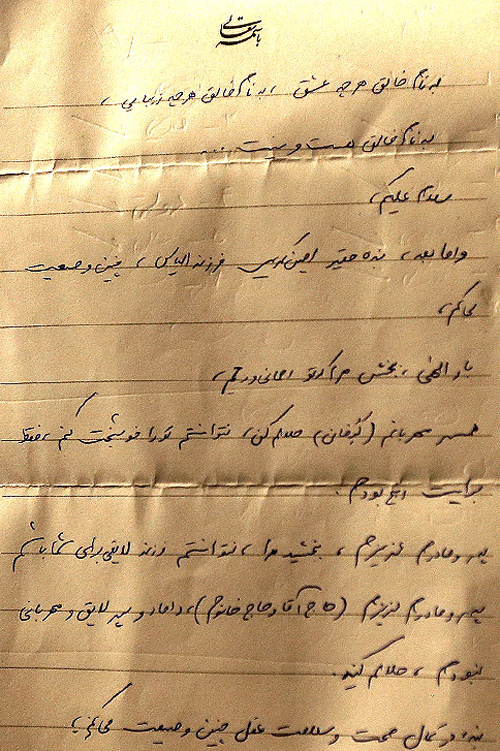 باسمه تعالی
به نام خالق هرچه عشق، به نام خالق هرچه زیبایی،
به نام خالق هست و نیست ...
سلام علیکم،
و اما بعد، بنده حقیر امین کریمی فرزند الیاس، چنین وصیت
می‌کنم،
بار الهی، ببخش مرا که تو
همسر مهربانم ( ) حلالم کن، نتوانستم تو را خوشبخت کنم، فقط
برایت رنج بودم.
پدر و مادرم عزیزم، ببخشید مرا، نتوانستم فرزند لایقی برای شما باشم
پدر و مادرم عزیزم (حاج آقا و حاج خانوم)، داماد و پسر لایق و مهربانی
نبودم، حلالم کنید.
بنده در کمال صحت و سلامت عقل چنین وصیت می‌کنم